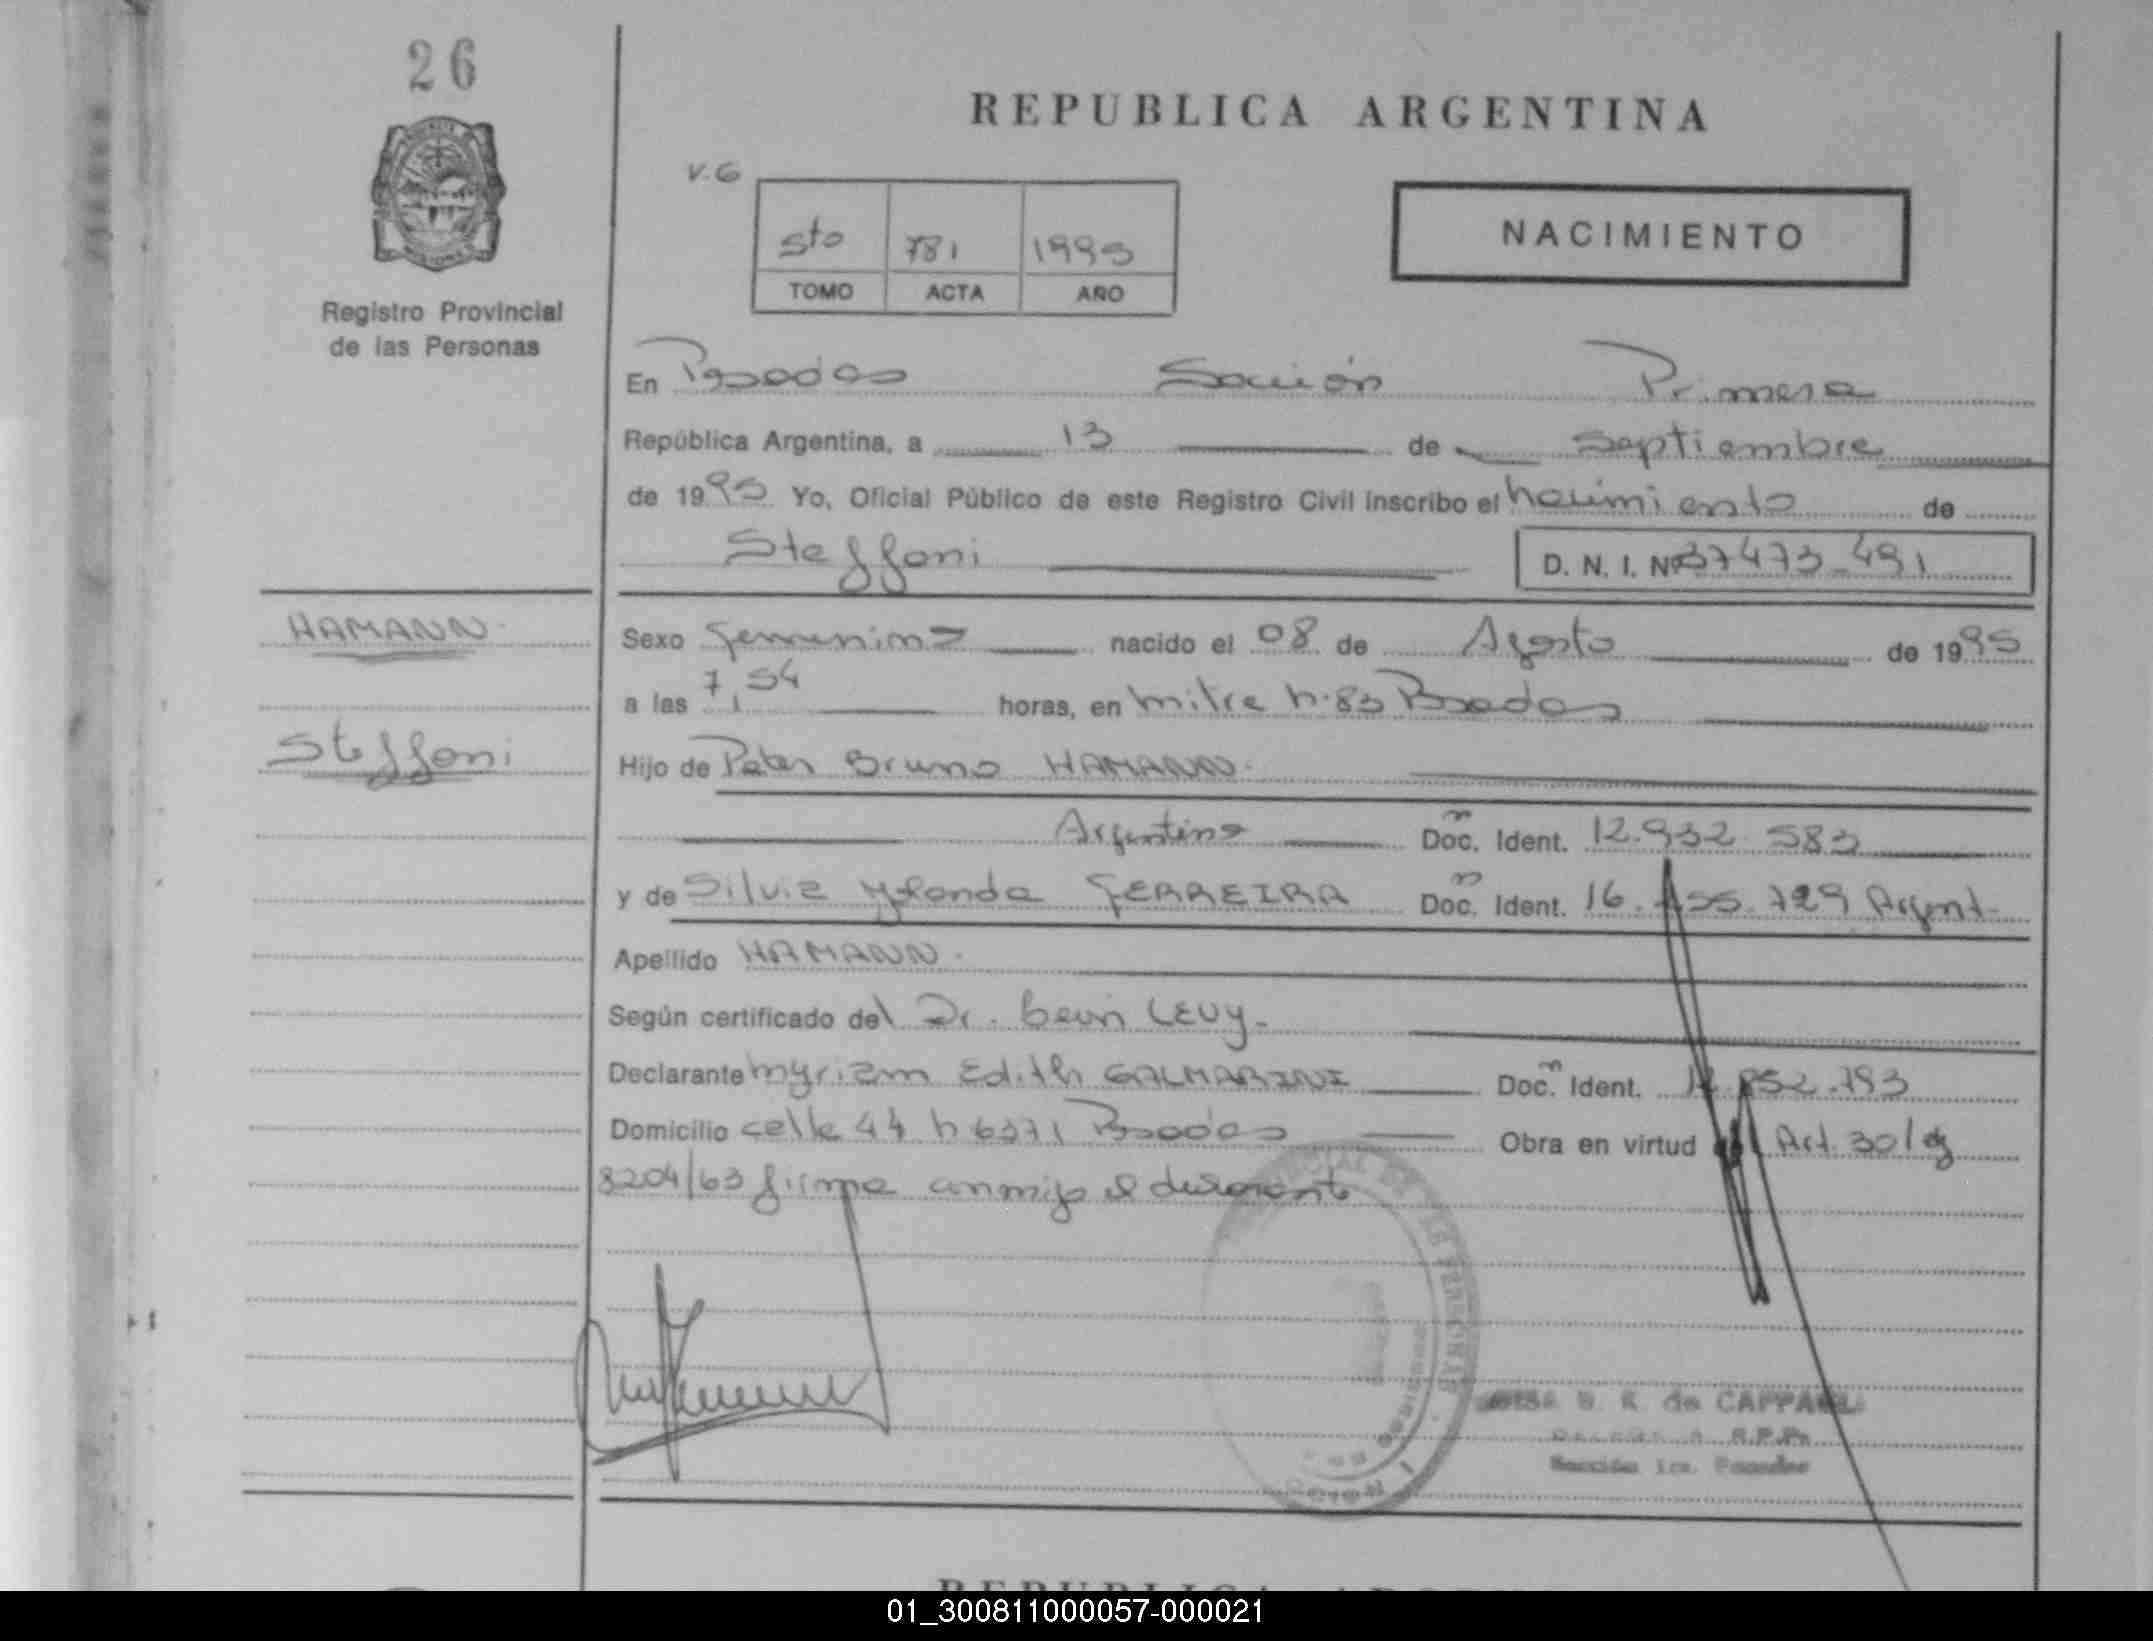 26
REPUBLICA ARGENTINA
V.6
5to 781 1995
TOMO ACTA AÑO
NACIMIENTO
Registro Provincial
de las Personas
En Posadas Sección Primera
República Argentina, a 13 de Septiembre
de 1995 Yo, Oficial Público de este Registro Civil inscribo el nacimiento de
Steffani D. N. I. Nº 37473-491
HAMANN
Steffani
Sexo femenino nacido el 08 de Agosto de 1995
a las 7,54 horas, en mitre n.83 Posadas
Hijo de Peter Bruno HAMANN
Argentino Doc. Ident. 12.932.583
y de Silvia Yolanda FERREIRA Doc. Ident. 16. 729 Argent.
Apellido HAMANN.
Según certificado del Dr. LEVY.
Declarante Myriam Edith GALMARINI Doc. Ident. 852.793
Domicilio calle 44 n 6371 Posadas Obra en virtud Art. 30
8204/63 firma conmigo el declarante
de CAPPA
R.P.P.
Sección 1ra. Posadas
01_300811000057-000021